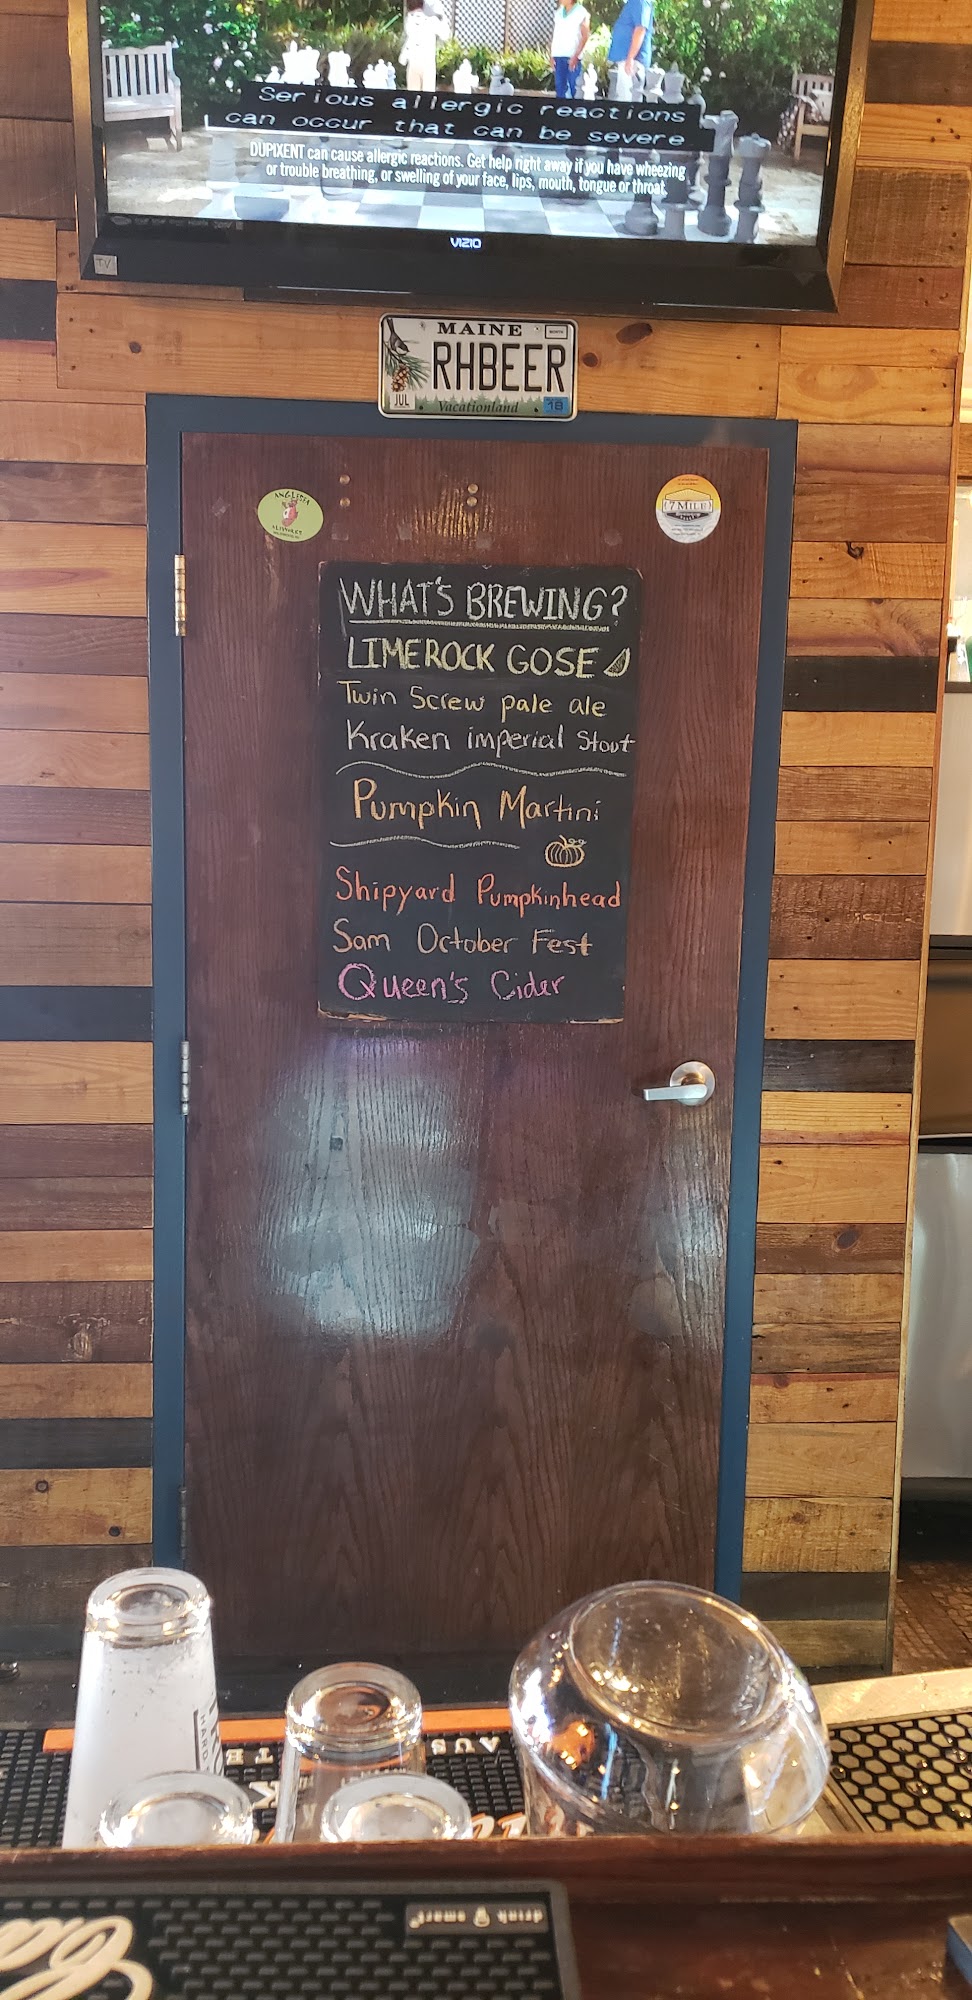 Serious allergic reactions
can occur that can be severe
DUPIXENT can cause allergic reactions. Get help right away if you have wheezing
or trouble breathing, or swelling of your face, lips, mouth, tongue or throat.
VIZIO
TV
MAINE
RHBEER
JUL
18
Vacationland
ANGLESEA
ALEWORKS
7 MILE
WHAT'S BREWING?
LIMEROCK GOSE
Twin Screw pale ale
Kraken imperial Stout
Pumpkin Martini
Shipyard Pumpkinhead
Sam October Fest
Queen's Cider
HARD
AUS
TE
drink smart